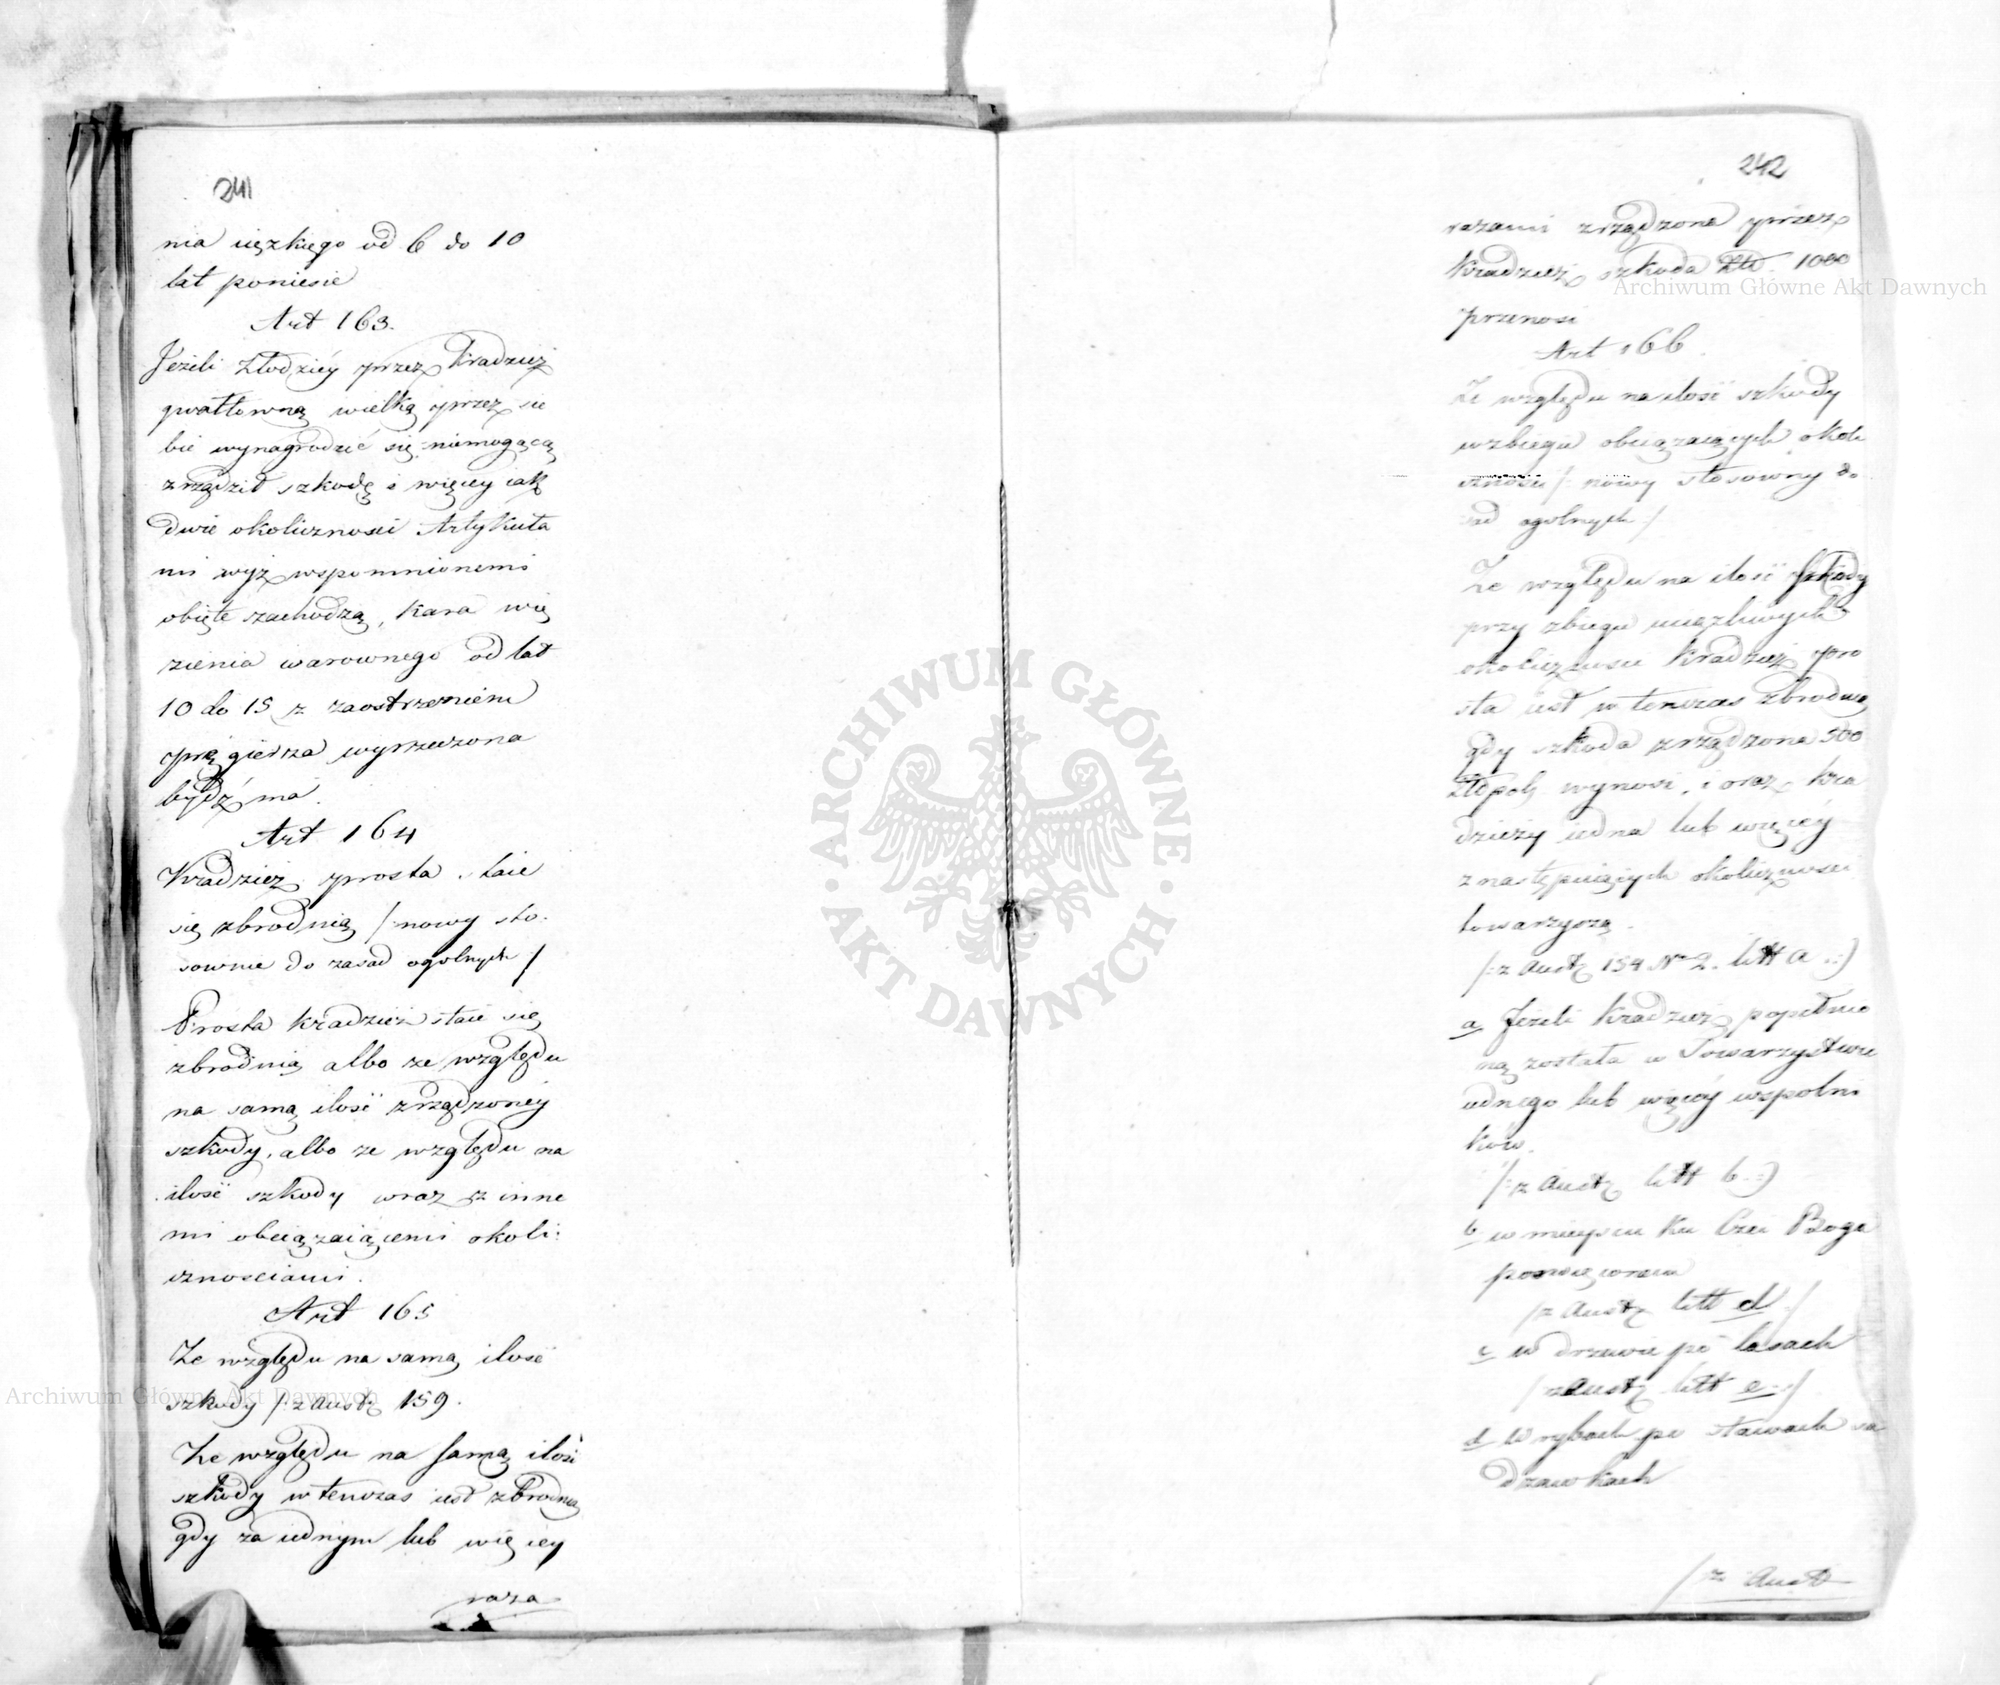 241
nia cięzkiego od 6 do 10
lat poniesie
Art 163.
Jeżeli Złodzićy przez Kradzież
gwałtowną wielką przez sie
bie wynagrodzić się niemogącą
zrządził szkodę i więcey iak
dwie okoliczności Artykuła
mi wyż wspomnionemi
obięte zachodzą, kara wię
zienia warownego od lat
10 do 15 z zaostrzeniem
pręgierza wyrzeczona
bydź ma.
Art 164
Kradzież prosta staie
się zbrodnią /: nowy sto-
sownie do zasad ogolnych /
Prosta kradzież staie się
zbrodnią albo ze względu
na samą ilość zrządzoney
szkody, albo ze względu na
ilość szkody wraz z inne
mi obciązaiącemi okoli:
cznosciami.
Art 165
Ze względu na samą ilość
szkody /: z Aust: 159.
Ze względu na samą ilość
szkody wtenczas iest zbrodnią
gdy za iednym lub więcey
raza
242
razami zrządzona przez
Kradzież szkoda Złt. 1000
przenosi
Art 166.
Ze względu na ilość szkody
wzbiegu obciązaiących okoli
czności /: nowy stosowny do
zasad ogolnych :/
Ze względu na ilość szkody
przy zbiegu uciążliwych
okoliczności Kradzież pro
sta iest w tenczas zbrodnią
gdy szkoda zrządzona 500
Złpol: wynosi, i oraz kra
dzieży iedna lub więcéy
z następuiących okoliczności
towarzyszą.
/: z Aust: 154 No 2. litt a :)
a Jeżeli Kradzież popełnio
ną została w Towarzystwie
iednego lub więcéy wspolni
ków.
/: z Aust: litt b :)
b w mieyscu Ku Czci Boga
poswięconem
/ z Aust: litt d :/
c w drzewie po lasach
/ z Aust: litt e :/
d w rybach po stawach sa
dzawkach
/ z Aust
Archiwum Główne Akt Dawnych
Archiwum Główne Akt Dawnych
ARCHIWUM GŁÓWNE
AKT DAWNYCH